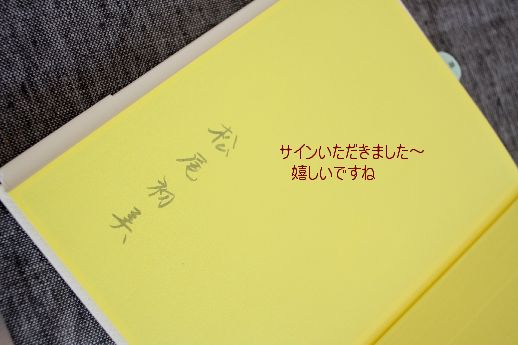 松尾初美
サインいただきました～
嬉しいですね